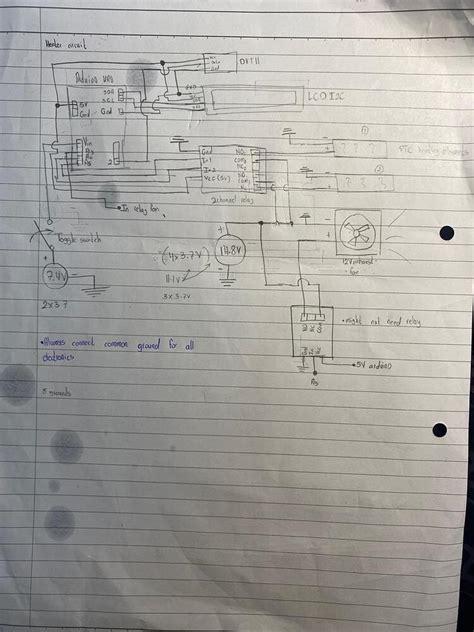 Heater circuit
DHT11
Arduino UNO
SDA
SCL
GND
LCD I2C
5V
Gnd
Gnd
Vin
2
Gnd
In1
In2
Vcc (5v)
NO1
COM1
NC1
NO
COM
NC
2 channel relay
①
PTC heater elements
②
? ? ?
? ? ?
In relay fan
Toggle switch
7.4V
2x3.7
(4x3.7V)
11.1v
3x3.7V
14.8V
12V
fan
• might not need relay
• 5V arduino
• Always connect common ground for all
electronics
5 grounds